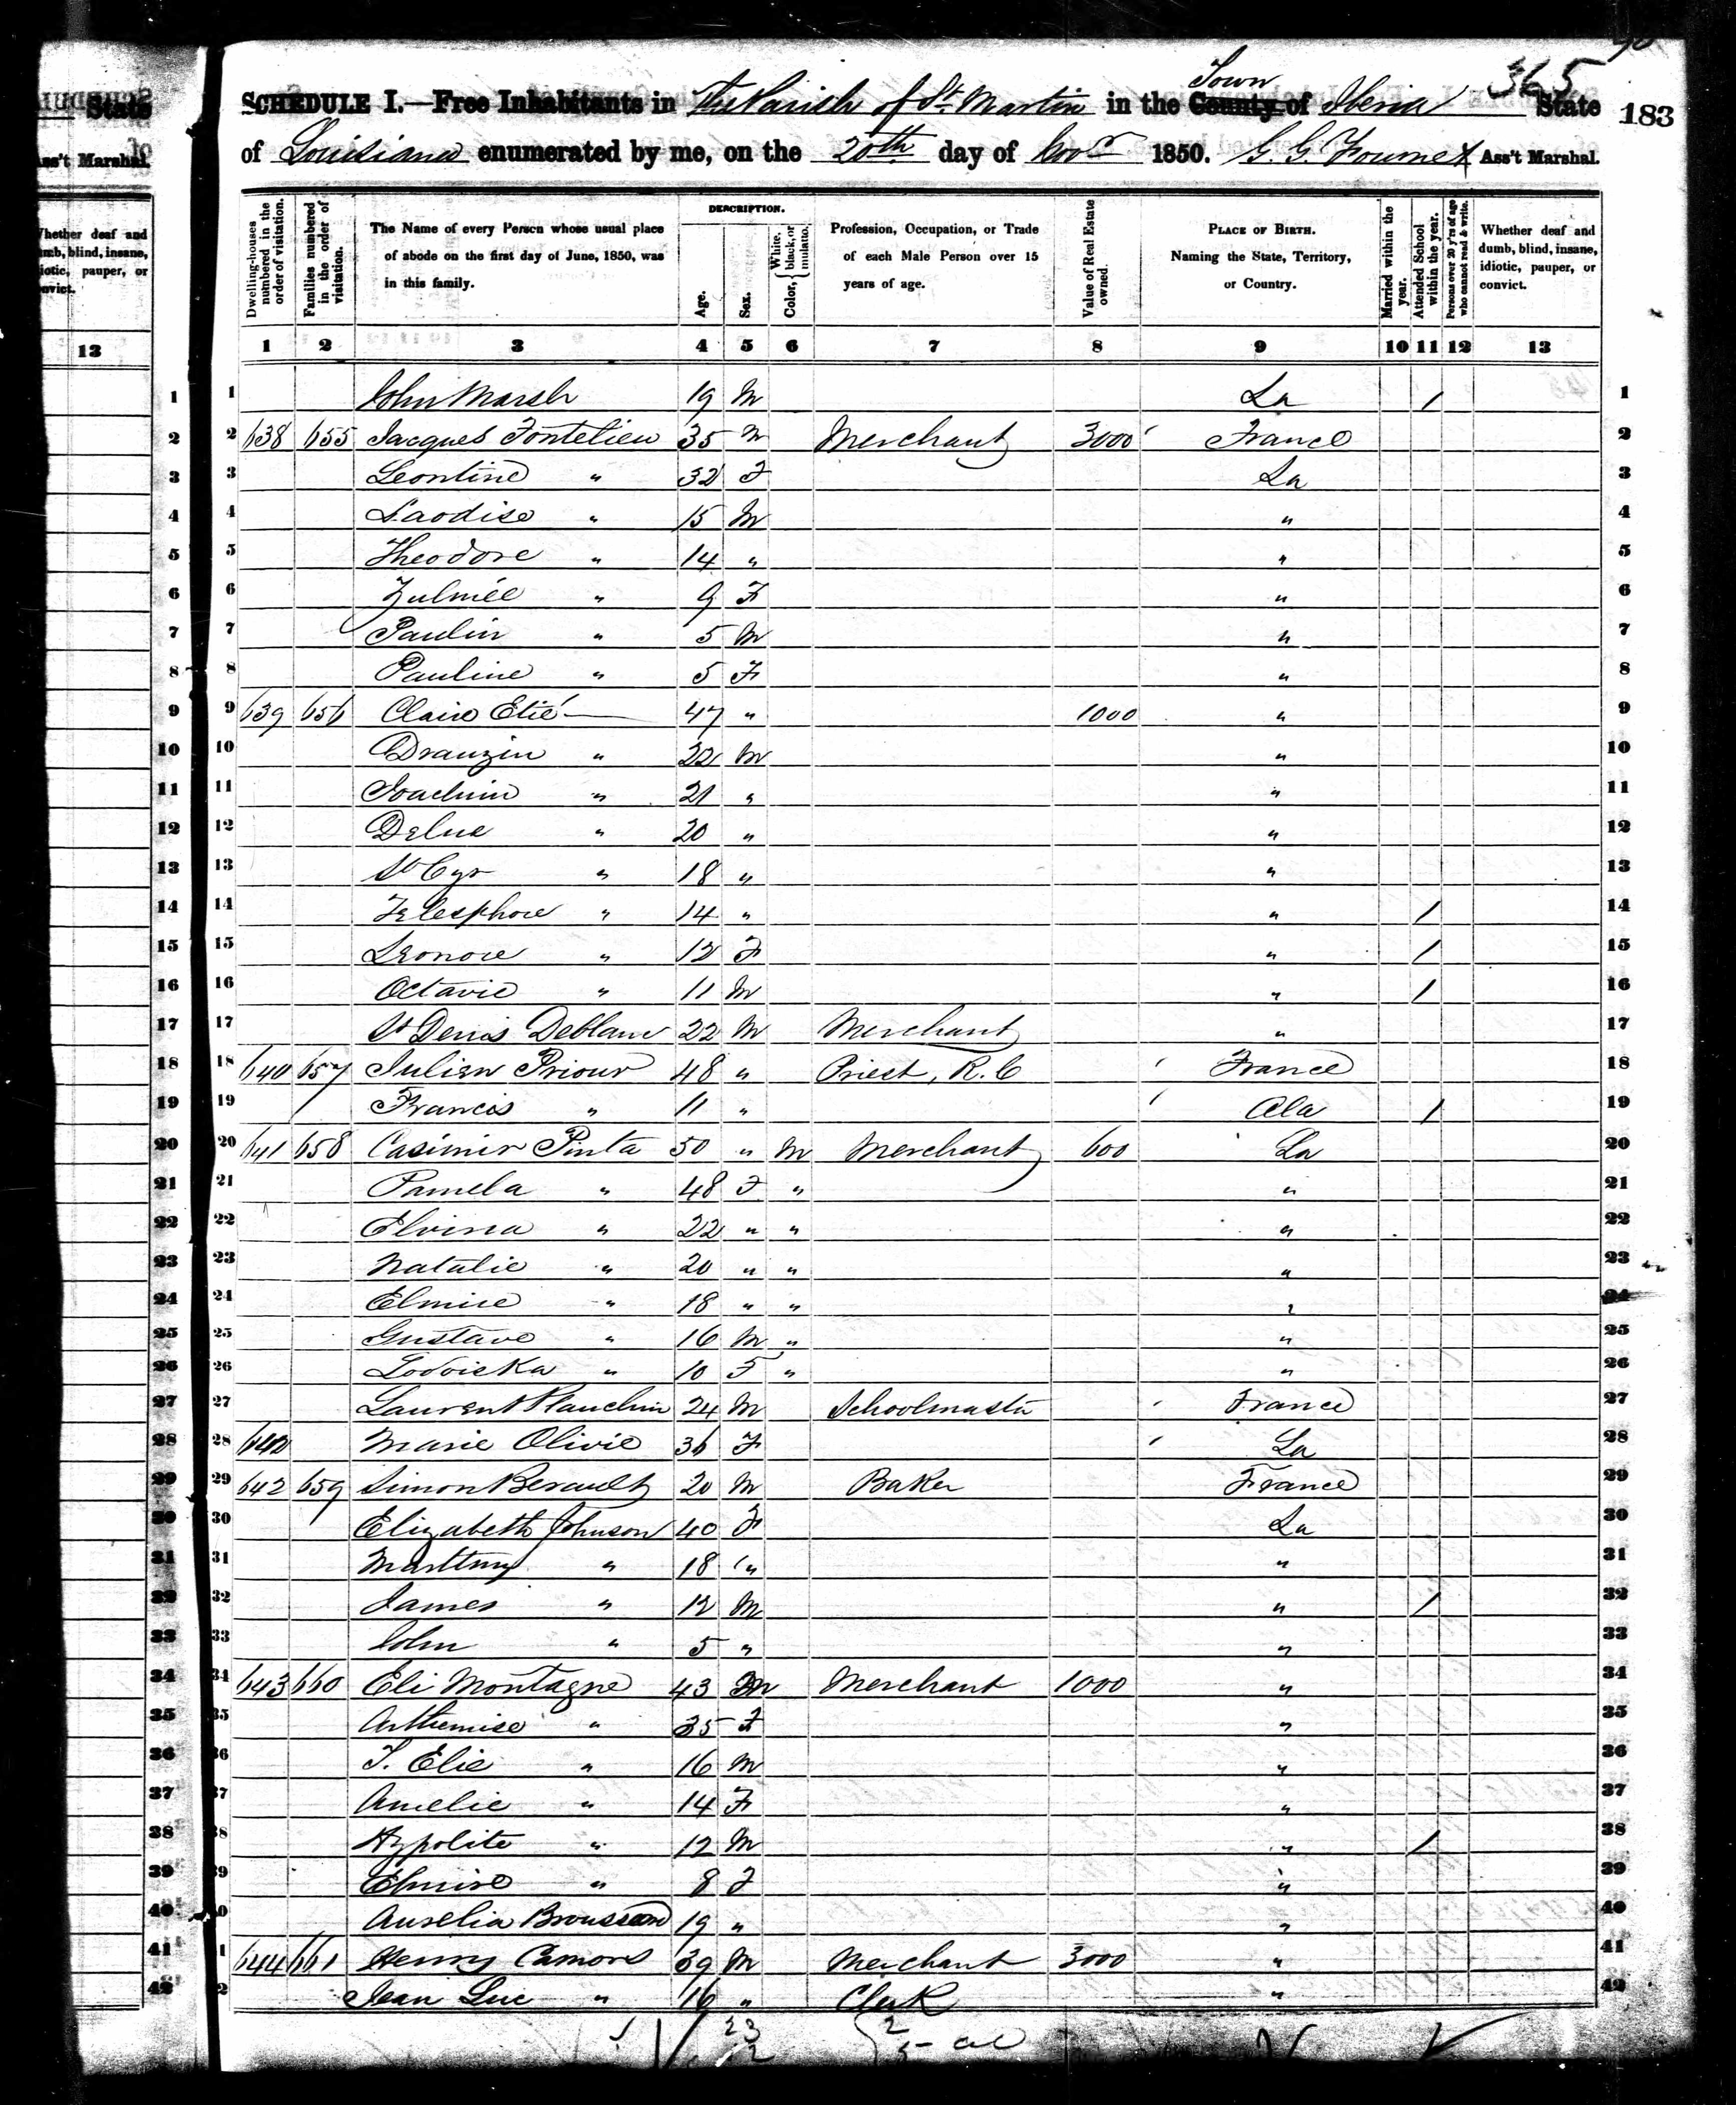 365
183
SCHEDULE I.—Free Inhabitants in The Parish of St. Martin in the County Town of Iberia State
of Louisiana enumerated by me, on the 20th day of Novr 1850. G. G. Fournet Ass't Marshal.
Dwelling-houses numbered in the order of visitation.
Families numbered in the order of visitation.
The Name of every Person whose usual place of abode on the first day of June, 1850, was in this family.
DESCRIPTION.
Age.
Sex.
Color, { White, black, or mulatto.
Profession, Occupation, or Trade of each Male Person over 15 years of age.
Value of Real Estate owned.
PLACE OF BIRTH. Naming the State, Territory, or Country.
Married within the year.
Attended School within the year.
Persons over 20 y'rs of age who cannot read & write.
Whether deaf and dumb, blind, insane, idiotic, pauper, or convict.
1 2 3 4 5 6 7 8 9 10 11 12 13
1 John Marsh 19 M La / 1
2 638 655 Jacques Fontelieu 35 M Merchant 3000 France 2
3 Leontine " 32 F La 3
4 Laodise " 15 M " 4
5 Theodore " 14 " " 5
6 Zulmée " 9 F " 6
7 Paulin " 5 M " 7
8 Pauline " 5 F " 8
9 639 656 Claire Etié 47 " 1000 " 9
10 Drauzin " 22 M " 10
11 Joachim " 21 " " 11
12 " 20 " " 12
13 St Cyr " 18 " " 13
14 Telesphore " 14 " " / 14
15 Leonore " 12 F " / 15
16 Octavie " 11 M " / 16
17 St Denis Deblanc 22 M Merchant " 17
18 640 657 Julien Priour 48 " Priest, R.C France 18
19 Francis " 11 " Ala / 19
20 641 658 Casimir Pinta 50 " M Merchant 600 La 20
21 Pamela " 48 F " " 21
22 Elvina " 22 " " " 22
23 Natalie " 20 " " " 23
24 Elmire " 18 " " " 24
25 Gustave " 16 M " " 25
26 Lodoiska " 10 F " " 26
27 Laurent 24 M Schoolmaster France 27
28 642 Marie Olivie 36 F La 28
29 642 659 Simon Berault 20 M Baker France 29
30 Elizabeth Johnson 40 F La 30
31 " 18 " " 31
32 James " 12 M " / 32
33 John " 5 " " 33
34 643 660 Eli Montagne 43 M Merchant 1000 " 34
35 Arthemise " 35 F " 35
36 T. Elie " 16 M " 36
37 Amelie " 14 F " 37
38 Hypolite " 12 M " / 38
39 Elmire " 8 F " 39
40 Aurelia Broussard 19 " " 40
41 644 661 Henry Camors 39 M Merchant 3000 " 41
42 Jean Luc " 16 " Clerk " 42